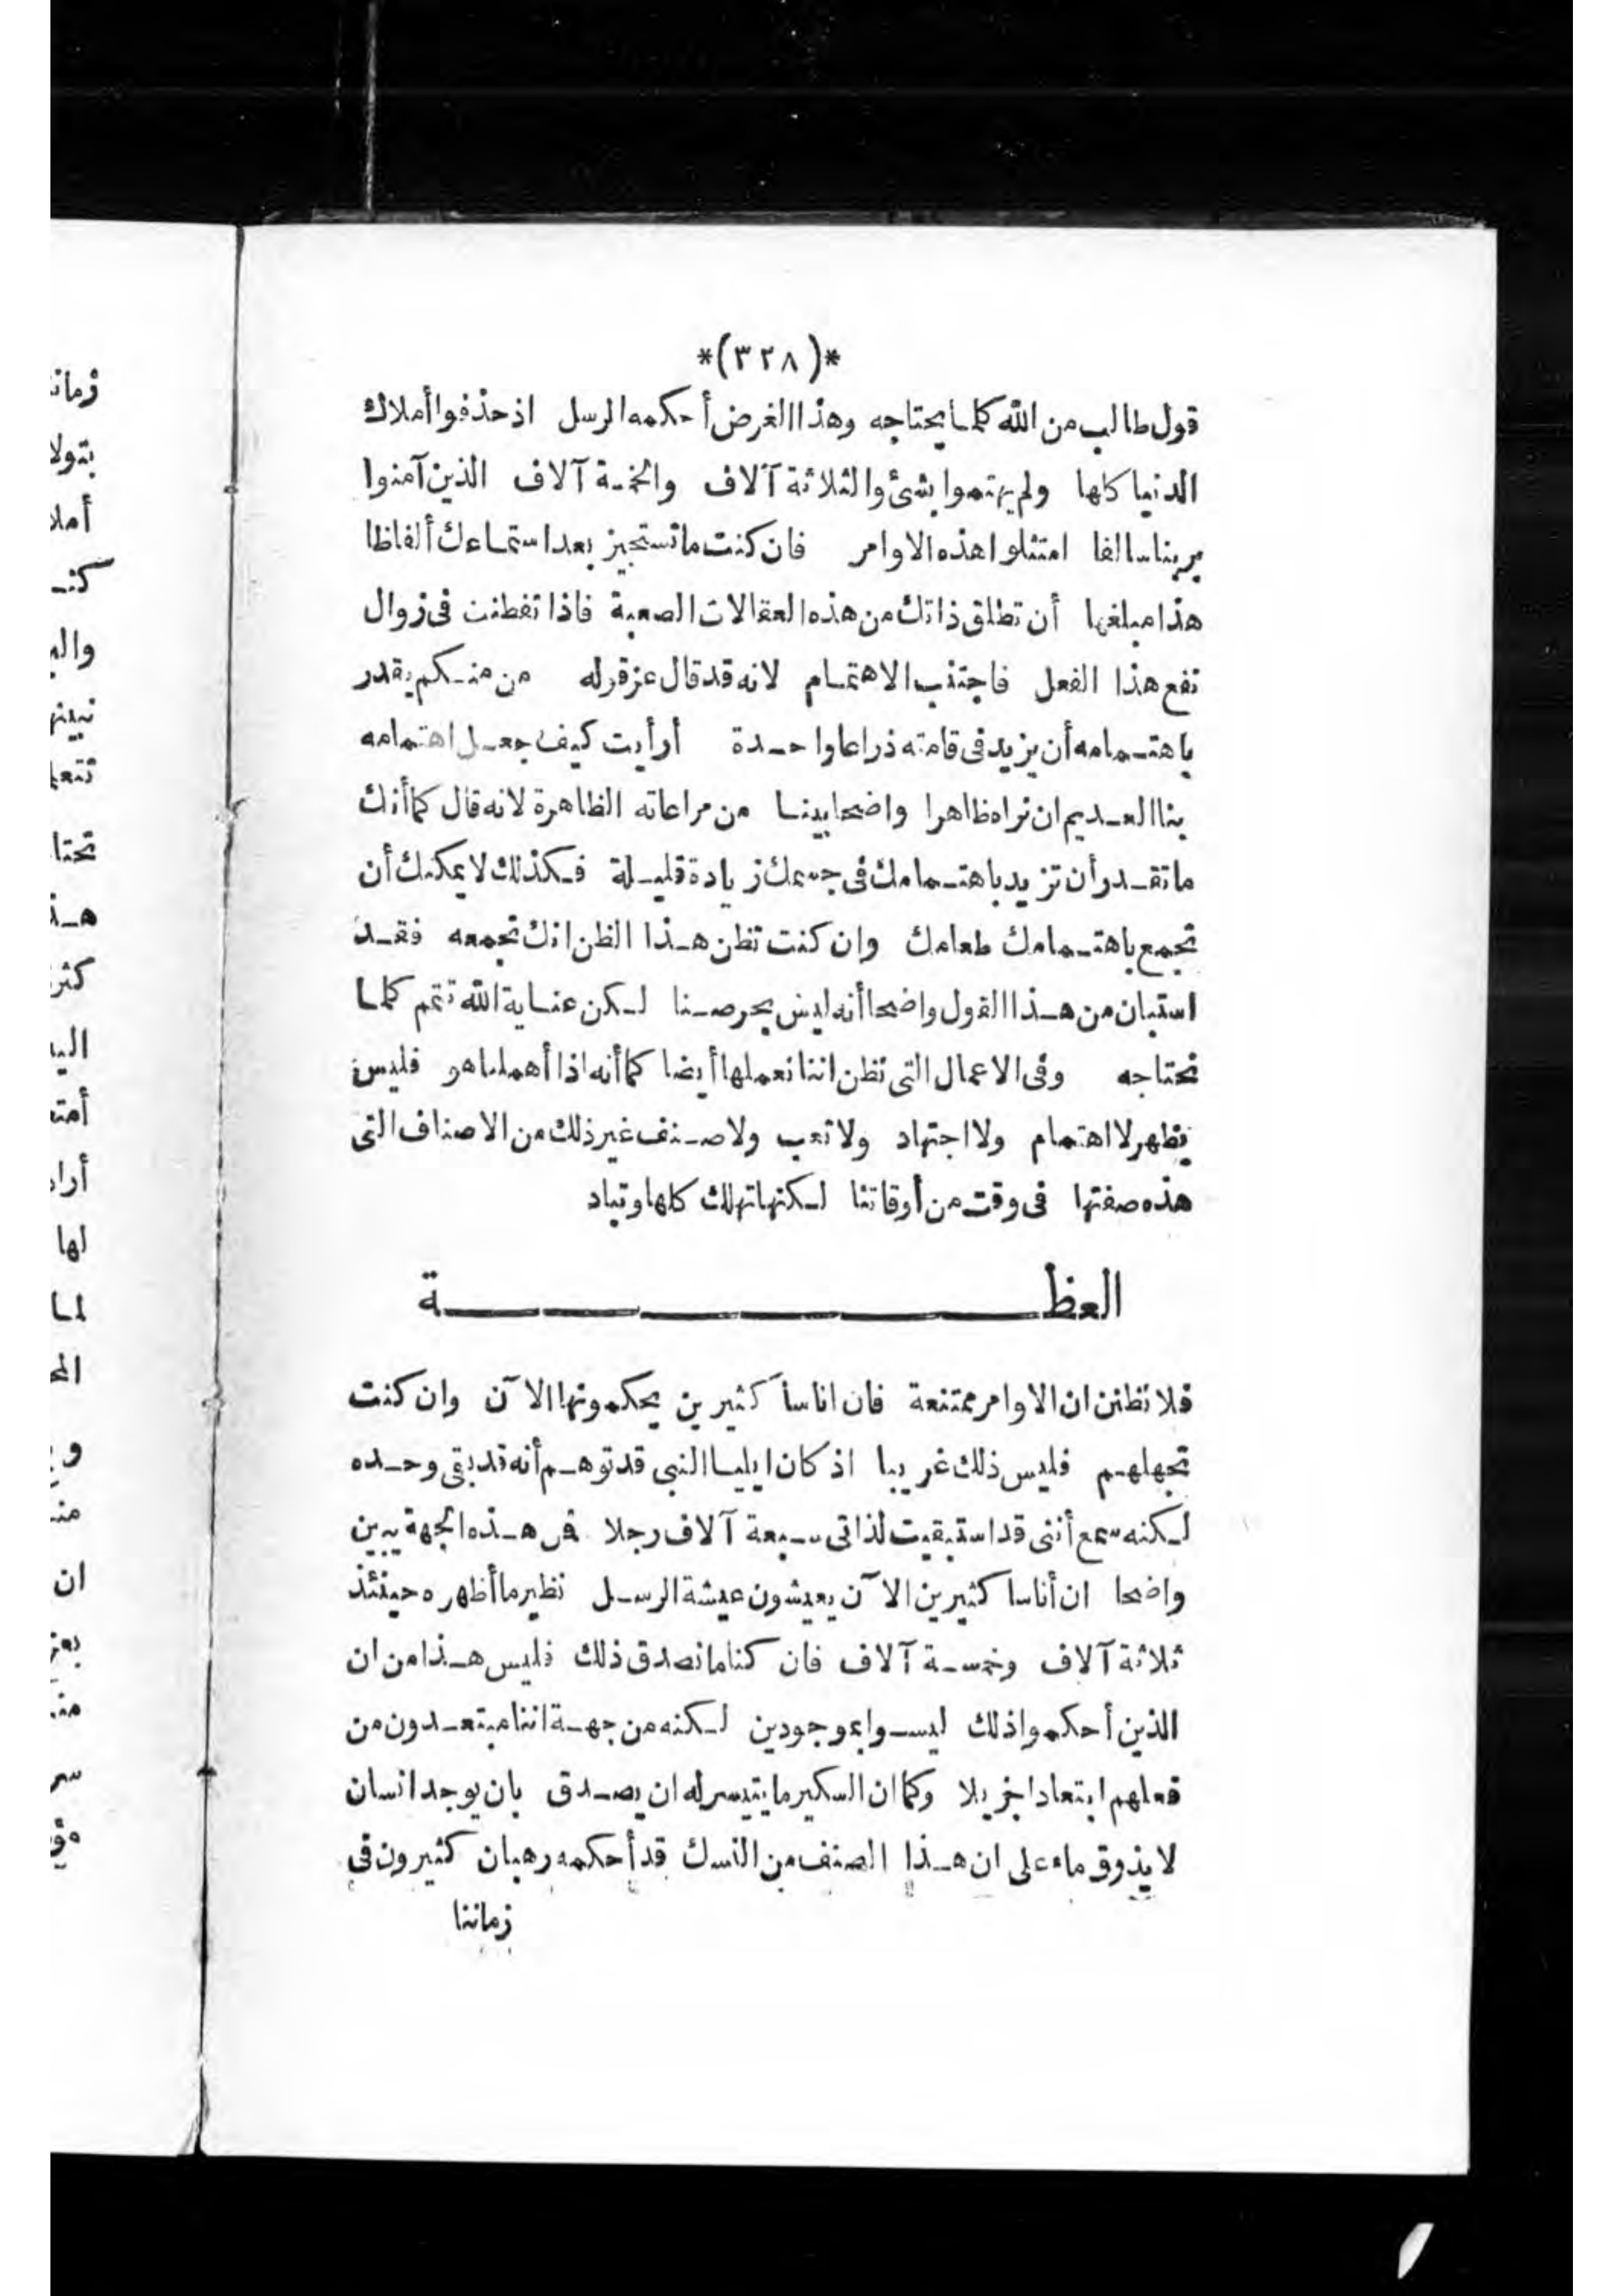 *(٣٢٨)*
قول طالب من الله كلما يحتاجه وهذا الغرض أحكمه الرسل اذ حذفوا أملاك
الدنيا كلها ولم يهتموا بشئ والثلاثة آلاف والخمسة آلاف الذين آمنوا
بربنا سالفا امتثلوا هذه الاوامر فان كنت ما تستجيز بعد استماعك ألفاظا
هذا مبلغها أن تطلق ذاتك من هذه العقالات الصعبة فاذا تفطنت فى زوال
نفع هذا الفعل فاجتنب الاهتمام لانه قد قال عز قوله من منكم يقدر
باهتمامه أن يزيد فى قامته ذراعا واحدة أرأيت كيف جعل اهتمامه
بنا العديم ان نراه ظاهرا واضحا بينا من مراعاته الظاهرة لانه قال كما أنك
ما تقدر أن تزيد باهتمامك فى جسمك زيادة قليلة فكذلك لا يمكنك أن
تجمع باهتمامك طعامك وان كنت تظن هذا الظن انك تجمعه فقد
استبان من هذا القول واضحا أنه ليس بحرصنا لكن عناية الله تتمم كلما
نحتاجه وفى الاعمال التى نظن اننا نعملها أيضا كما أنه اذا أهملنا هو فليس
يظهر لا اهتمام ولا اجتهاد ولا تعب ولا صنف غير ذلك من الاصناف التى
هذه صفتها فى وقت من أوقاتنا لكنها تهلك كلها وتباد
العظة
فلا تظنن ان الاوامر ممتنعة فان اناسا كثيرين يحكمونها الآن وان كنت
تجهلهم فليس ذلك غريبا اذ كان ايليا النبى قد توهم أنه قد بقى وحده
لكنه سمع أننى قد استبقيت لذاتى سبعة آلاف رجلا فمن هذه الجهة يبين
واضحا ان أناسا كثيرين الآن يعيشون عيشة الرسل نظير ما أظهره حينئذ
ثلاثة آلاف وخمسة آلاف فان كنا ما نصدق ذلك فليس هذا من ان
الذين أحكموا ذلك ليسوا بموجودين لكنه من جهة اننا مبتعدون من
فعلهم ابتعادا جزيلا وكما ان السكير ما يتيسر له ان يصدق بان يوجد انسان
لا يذوق ماء على ان هذا الصنف من النسك قد أحكمه رهبان كثيرون فى
زماننا